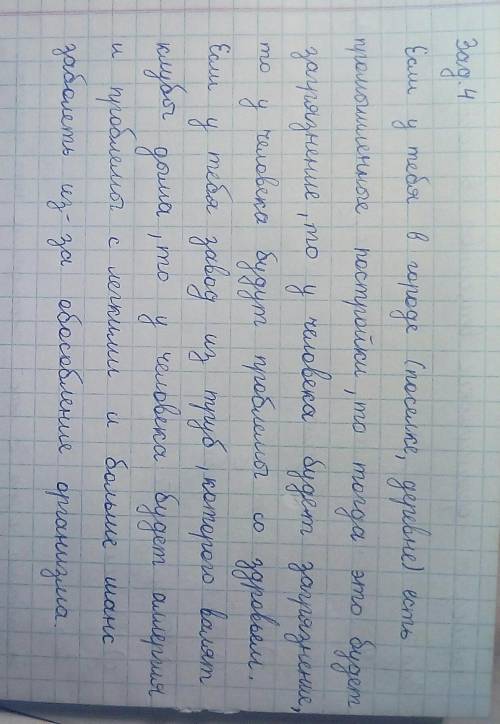 Зад.4
Если у тебя в городе (поселке, деревне) есть
промышленные постройки, то тогда это будет
загрязнение, то у человека будет загрязнение,
то у человека будут проблемы со здровьем.
Если у тебя завод из труб, которого валят
клубы дыма, то у человека будет алергия
и проблемы с легкими и больше шанс
заболеть из-за обособление организма.